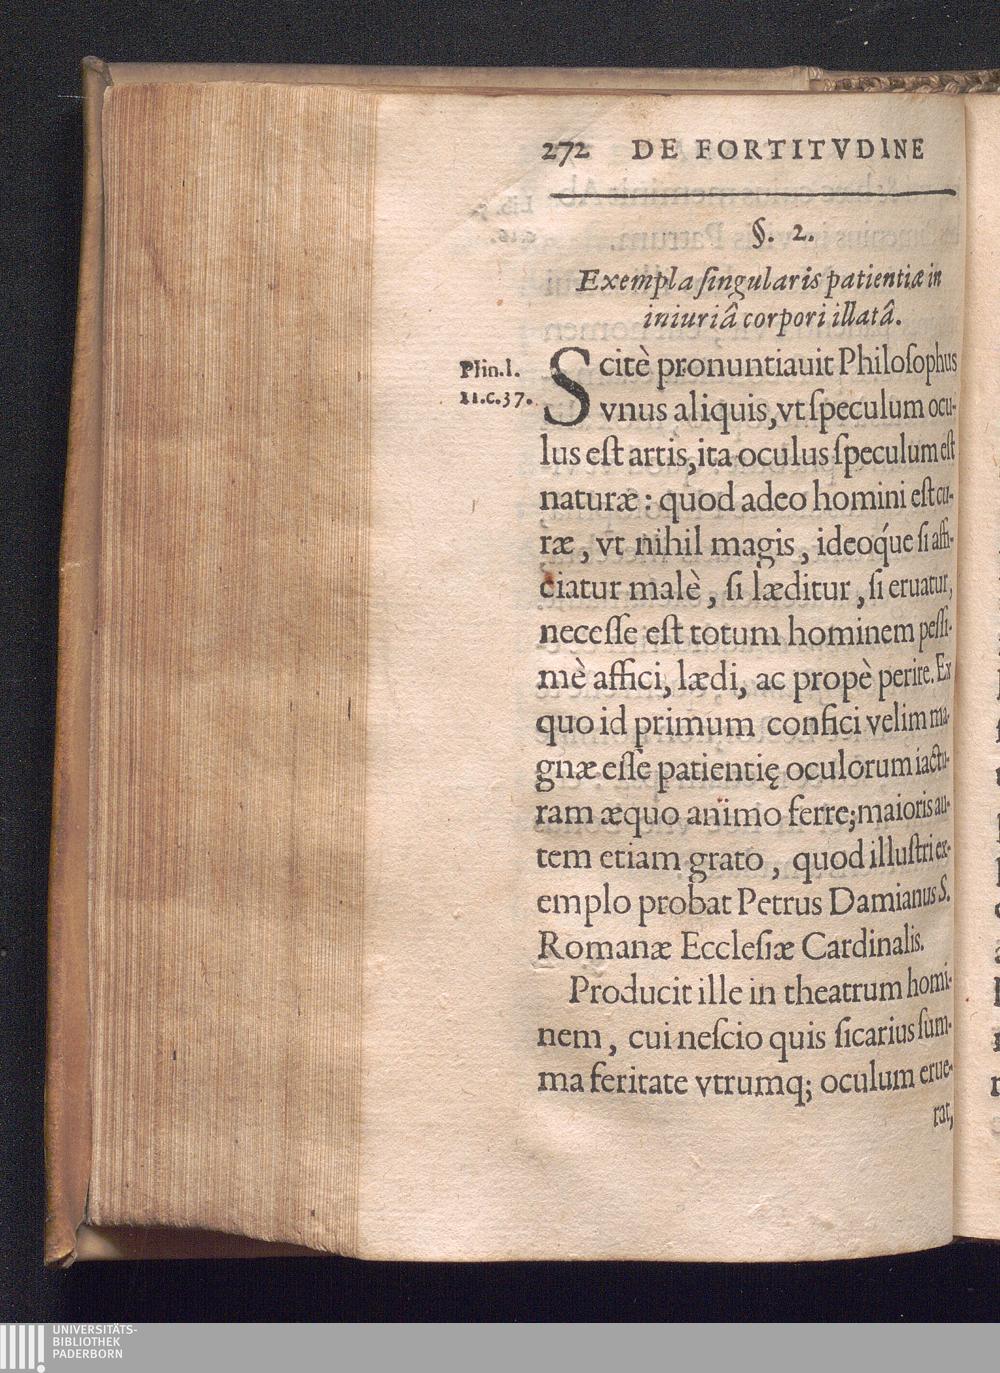 272 DE FORTITVDINE
§. 2.
Exempla ſingularis patientiæ in
iniuriâ corpori illatâ.
Plin. l.
11. c. 37.
Scitè pronuntiauit Philoſophus
vnus aliquis, vt ſpeculum ocu-
lus eſt artis, ita oculus ſpeculum eſt
naturæ : quod adeo homini eſt cu-
ræ, vt nihil magis, ideoq́ue ſi affi-
ciatur malè, ſi læditur, ſi eruatur,
neceſſe eſt totum hominem peſſi-
mè affici, lædi, ac propè perire. Ex
quo id primum confici velim ma-
gnæ eſſe patientię oculorum iactu-
ram æquo animo ferre; maioris au-
tem etiam grato, quod illuſtri ex-
emplo probat Petrus Damianus S.
Romanæ Eccleſiæ Cardinalis.
Producit ille in theatrum homi-
nem, cui neſcio quis ſicarius ſum-
ma feritate vtrumq; oculum erue-
rat,
UNIVERSITÄTS-
BIBLIOTHEK
PADERBORN